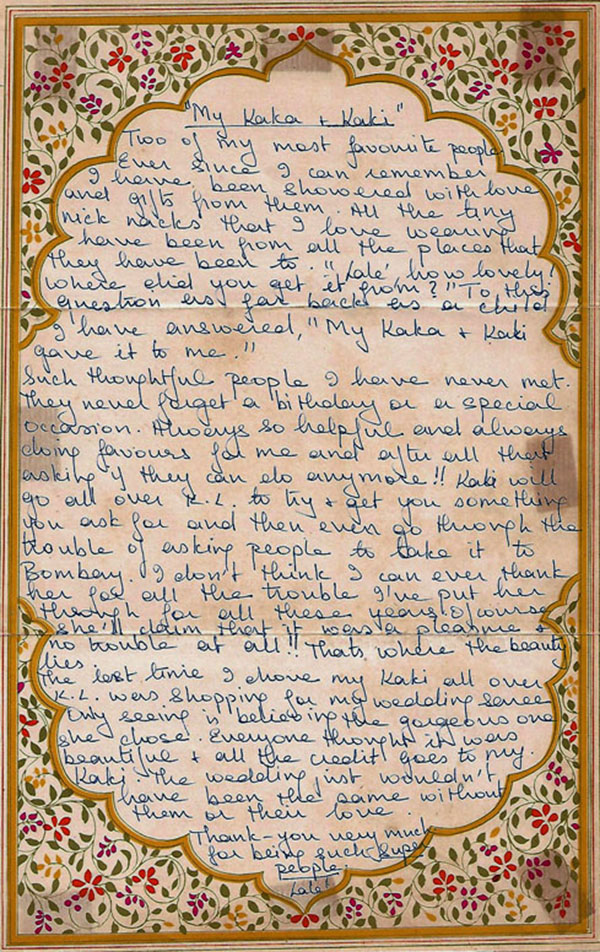 "My Kaka + Kaki"
Two of my most favourite people
Ever since I can remember
I have been showered with love
and gifts from them. All the tiny
nick nacks that I love wearing
have been from all the places that
they have been to. "Lale' how lovely!
where did you get it from?" To this
question as far back as a child
I have answered, "My Kaka + Kaki
gave it to me."
Such thoughtful people I have never met.
They never forget a birthday or a special
occasion. Always so helpful and always
doing favours for me and after all that
asking if they can do anymore!! Kaki will
go all over K.L. to try + get you something
you ask for and then even go through the
trouble of asking people to take it to
Bombay. I don't think I can ever thank
her for all the trouble I've put her
through for all these years ofcourse
she'll claim that it was a pleasure +
no trouble at all!! Thats where the beauty
lies.
The last time I drove my Kaki all over
K.L. was shopping for my wedding saree
Only seeing is believing the gorgeous one
she chose. Everyone thought it was
beautiful + all the credit goes to my
Kaki. The wedding just wouldn't
have been the same without
them or their love.
Thank-you very much
for being such super
people.
Lale'